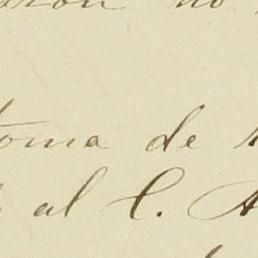 no
toma de
al C. A